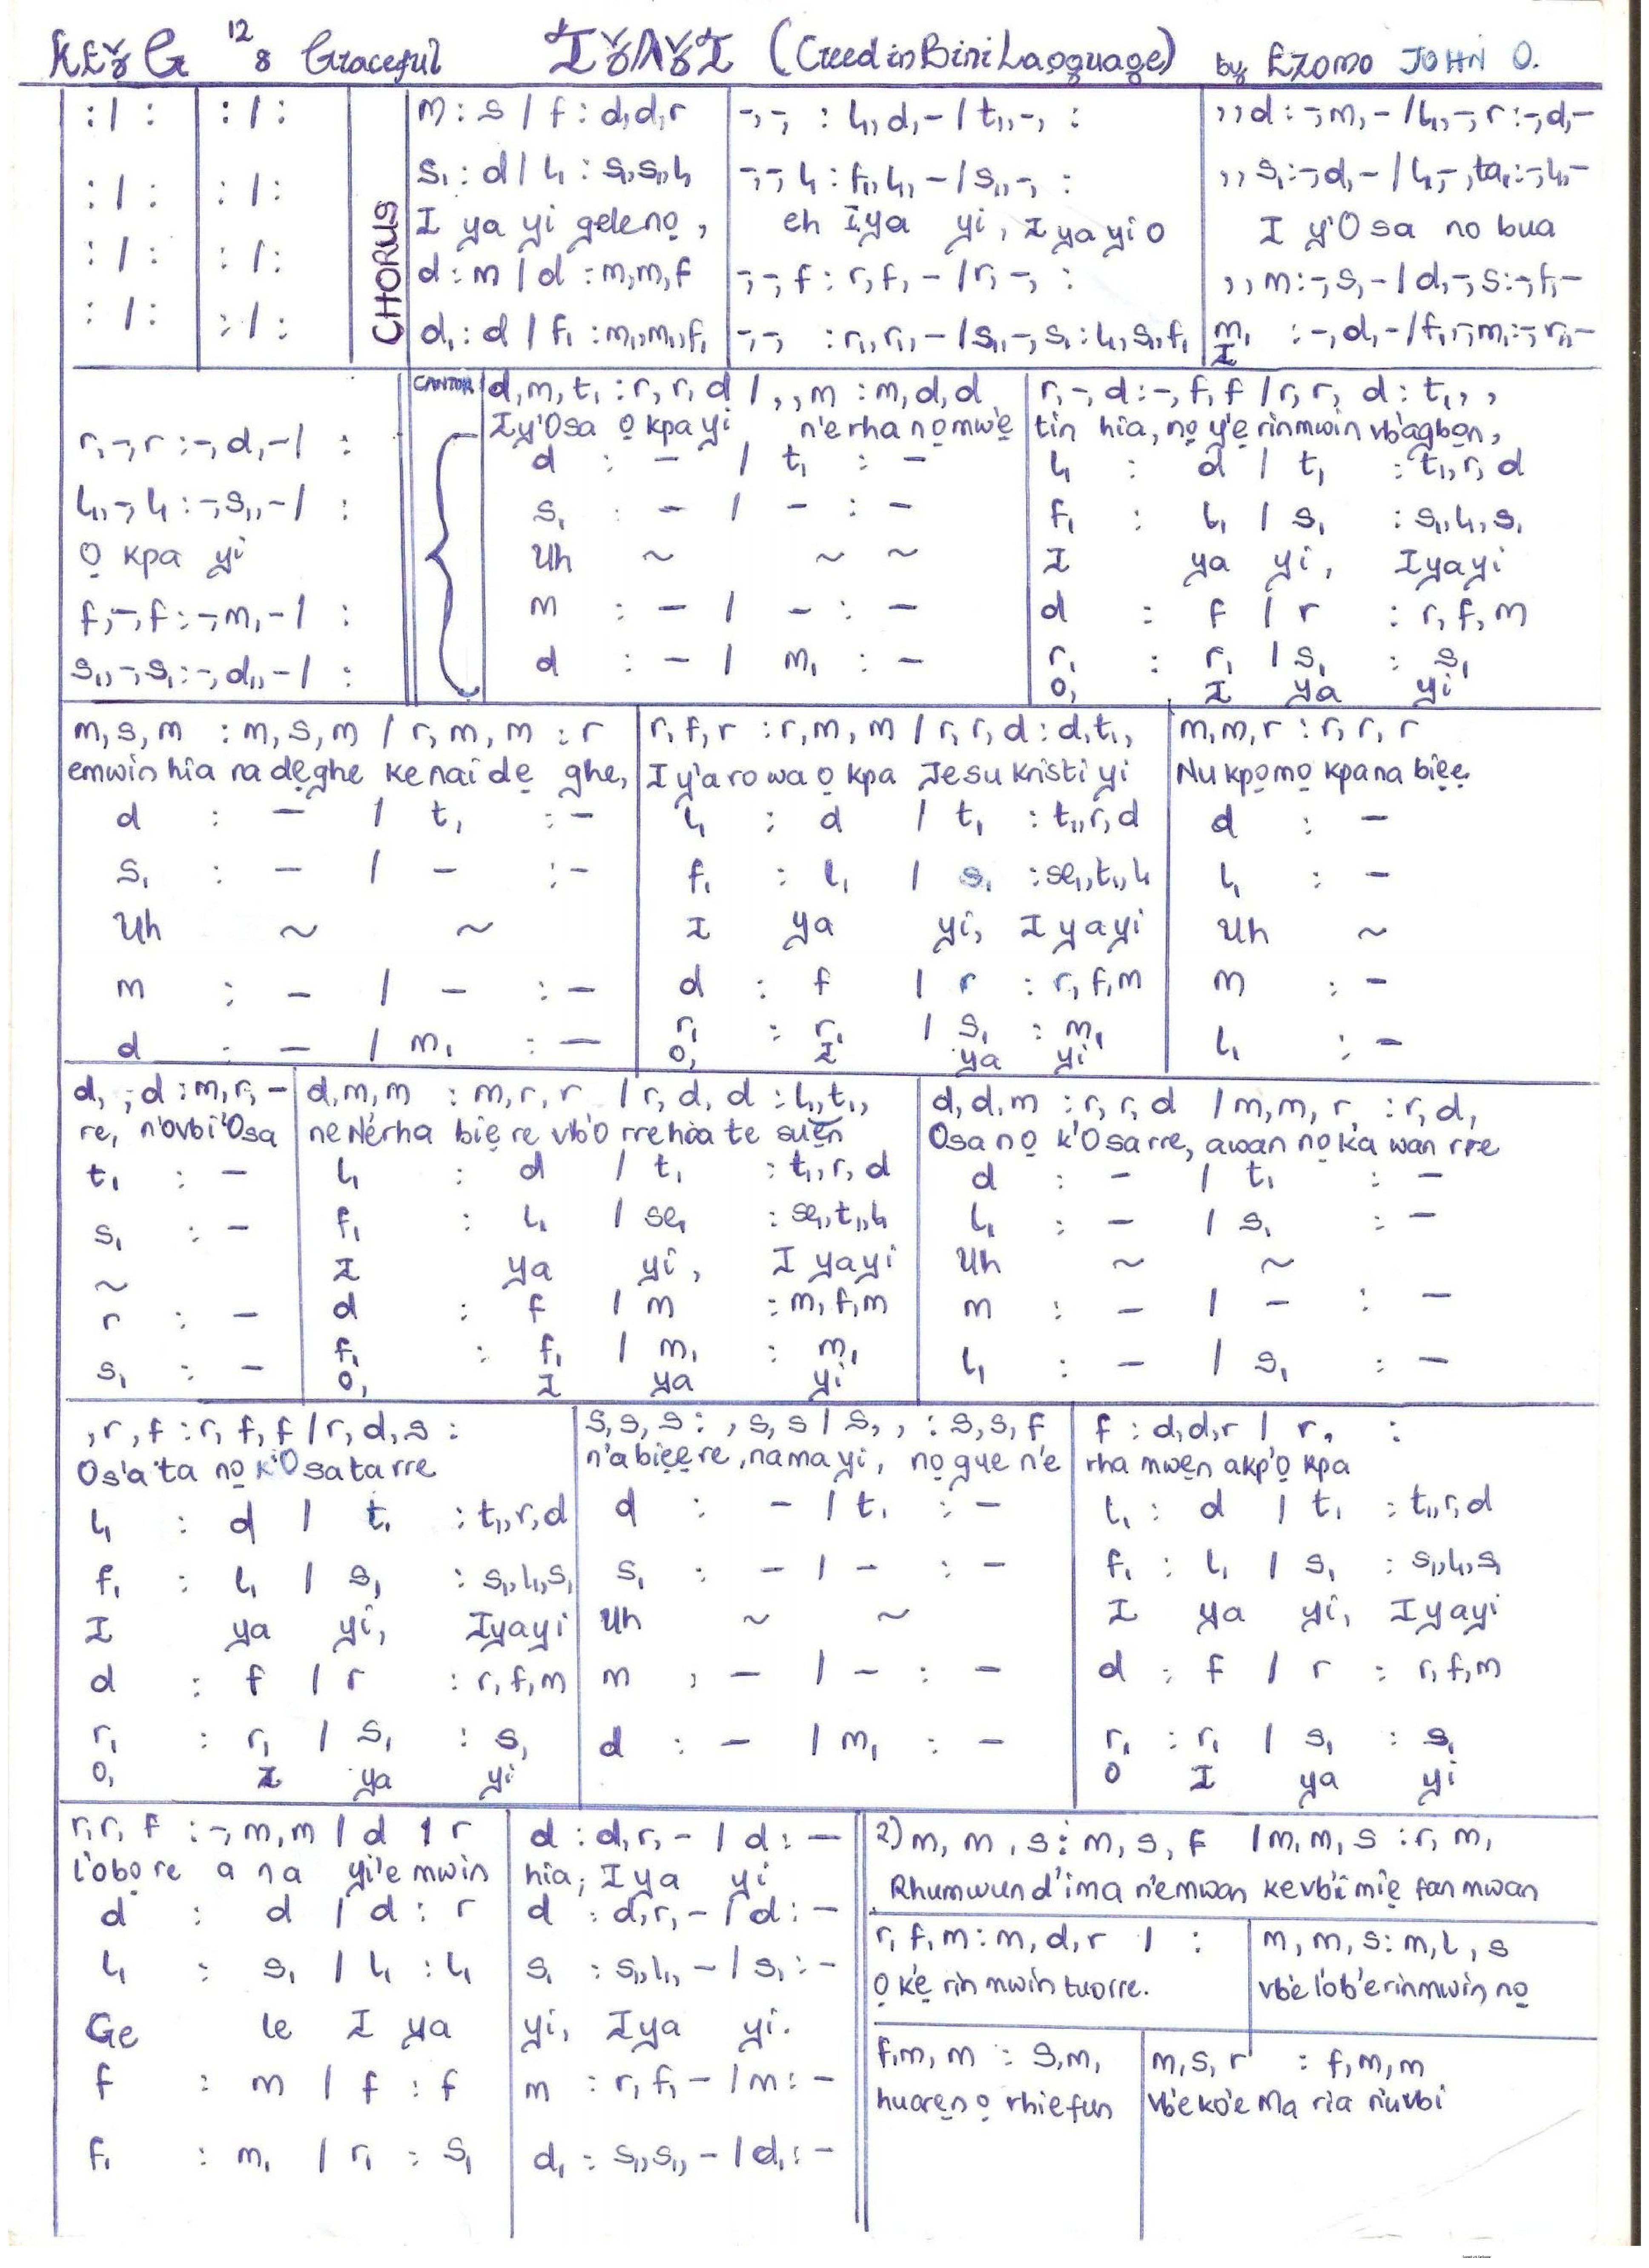 KEY G 12/8 Graceful IYAYI (Creed in Bini Language) by EZOMO JOHN O.
: / : : / :
: / : : / :
: / : : / :
: / : : / :
CHORUS
m : s / f : d,d,r
s₁ : d / l₁ : s₁,s₁,l₁
I ya yi geleno̱,
d : m / d : m,m,f
d₁ : d / f₁ : m₁,m₁,f₁
-,-, : l₁,d,- / t₁,-, :
-,-,l₁ : f₁,l₁,- / s₁,-, :
eh Iya yi, Iyayi o
-,-,f : r,f,- / r,-, :
-,-, : r₁,r₁,- / s₁,-,s₁ : l₁,s₁,f₁
,,d : -,m,- / l₁,-,r : -,d,-
,,s₁ : -,d,- / l₁,-,ta₁ : -,l₁,-
I y'Osa no bua
,,m : -,s,- / d,-,s : -,f,-
m₁ : -,d,- / f₁,-,m₁ : -,r₁,-
I
r,-,r : -,d,- / :
l₁,-,l₁ : -,s₁,- / :
O̱ kpa yi
f,-,f : -,m,- / :
s₁,-,s₁ : -,d₁,- / :
CANTOR
d,m,t₁ : r,r,d / ,,m : m,d,d
Iy'Osa o̱kpa yi n'erhano̱mwe̱
d : - / t₁ : -
s₁ : - / - : -
Uh ~ ~ ~
m : - / - : -
d : - / m₁ : -
r,-,d : -,f,f / r,r,d : t₁,,
tin hia, no̱ y'e̱rinmwin vb'agbo̱n,
l₁ : d / t₁ : t₁,r,d
f₁ : l₁ / s₁ : s₁,l₁,s₁
I ya yi, Iyayi
d : f / r : r,f,m
r₁ : r₁ / s₁ : s₁
O, I ya yi
m,s,m : m,s,m / r,m,m : r
emwin hia na de̱ghe kenai de̱ ghe,
d : - / t₁ : -
s₁ : - / - : -
Uh ~ ~
m : - / - : -
d : - / m₁ : -
r,f,r : r,m,m / r,r,d : d,t₁,
I y'arowa o̱kpa Jesu Kristi yi
l₁ : d / t₁ : t₁,r,d
f₁ : l₁ / s₁ : se₁,t₁,l₁
I ya yi, Iyayi
d : f / r : r,f,m
r₁ : r₁ / s₁ : m₁
O, I ya yi
m,m,r : r,r,r
Nukpo̱mo̱kpa na bie̱e̱
d : -
l₁ : -
Uh ~
m : -
l₁ : -
d,-,d : m,r,-
re, n'ovbi'Osa
t₁ : -
s₁ : -
~
r : -
s₁ : -
d,m,m : m,r,r / r,d,d : l₁,t₁,
ne Nérha bie̱re vb'orrehia te sue̱n
l₁ : d / t₁ : t₁,r,d
f₁ : l₁ / se₁ : se₁,t₁,l₁
I ya yi, I yayi
d : f / m : m,f,m
f₁ : f₁ / m₁ : m₁
O, I ya yi
d,d,m : r,r,d / m,m,r : r,d,
Osa no̱ k'Osa rre, awan no̱ ka wan rre
d : - / t₁ : -
l₁ : - / s₁ : -
Uh ~ ~
m : - / - : -
l₁ : - / s₁ : -
,r,f : r,f,f / r,d,s :
Os'a'ta no̱ k'Osatarre
l₁ : d / t₁ : t₁,r,d
f₁ : l₁ / s₁ : s₁,l₁,s₁
I ya yi, Iyayi
d : f / r : r,f,m
r₁ : r₁ / s₁ : s₁
O, I ya yi
s,s,s : ,s,s / s,, : s,s,f
n'abie̱e̱re, namayi, no̱gue n'e
d : - / t₁ : -
s₁ : - / - : -
Uh ~ ~
m : - / - : -
d : - / m₁ : -
f : d,d,r / r, :
rhamwe̱n akp'o̱kpa
l₁ : d / t₁ : t₁,r,d
f₁ : l₁ / s₁ : s₁,l₁,s₁
I ya yi, Iyayi
d : f / r : r,f,m
r₁ : r₁ / s₁ : s₁
O I ya yi
r,r,f : -,m,m / d : r
l'obo̱re a na yi'emwin
d : d / d : r
l₁ : s₁ / l₁ : l₁
Ge le I ya
f : m / f : f
f₁ : m₁ / r₁ : s₁
d : d,r,- / d : -
hia, Iya yi
d : d,r,- / d : -
s₁ : s₁,l₁,- / s₁ : -
yi, Iya yi.
m : r,f,- / m : -
d₁ : s₁,s₁,- / d₁ : -
2) m,m,s : m,s,f / m,m,s : r,m,
Rhumwund'ima n'emwan kevbi mie̱ fan mwan
r,f,m : m,d,r / :
o̱ ke̱rinmwin tuorre.
m,m,s : m,l,s
vb'e l'ob'erinmwin no̱
f,m,m : s,m,
huare̱n o̱ rhiefun
m,s,r : f,m,m
vb'eko'e Maria n'uvbi